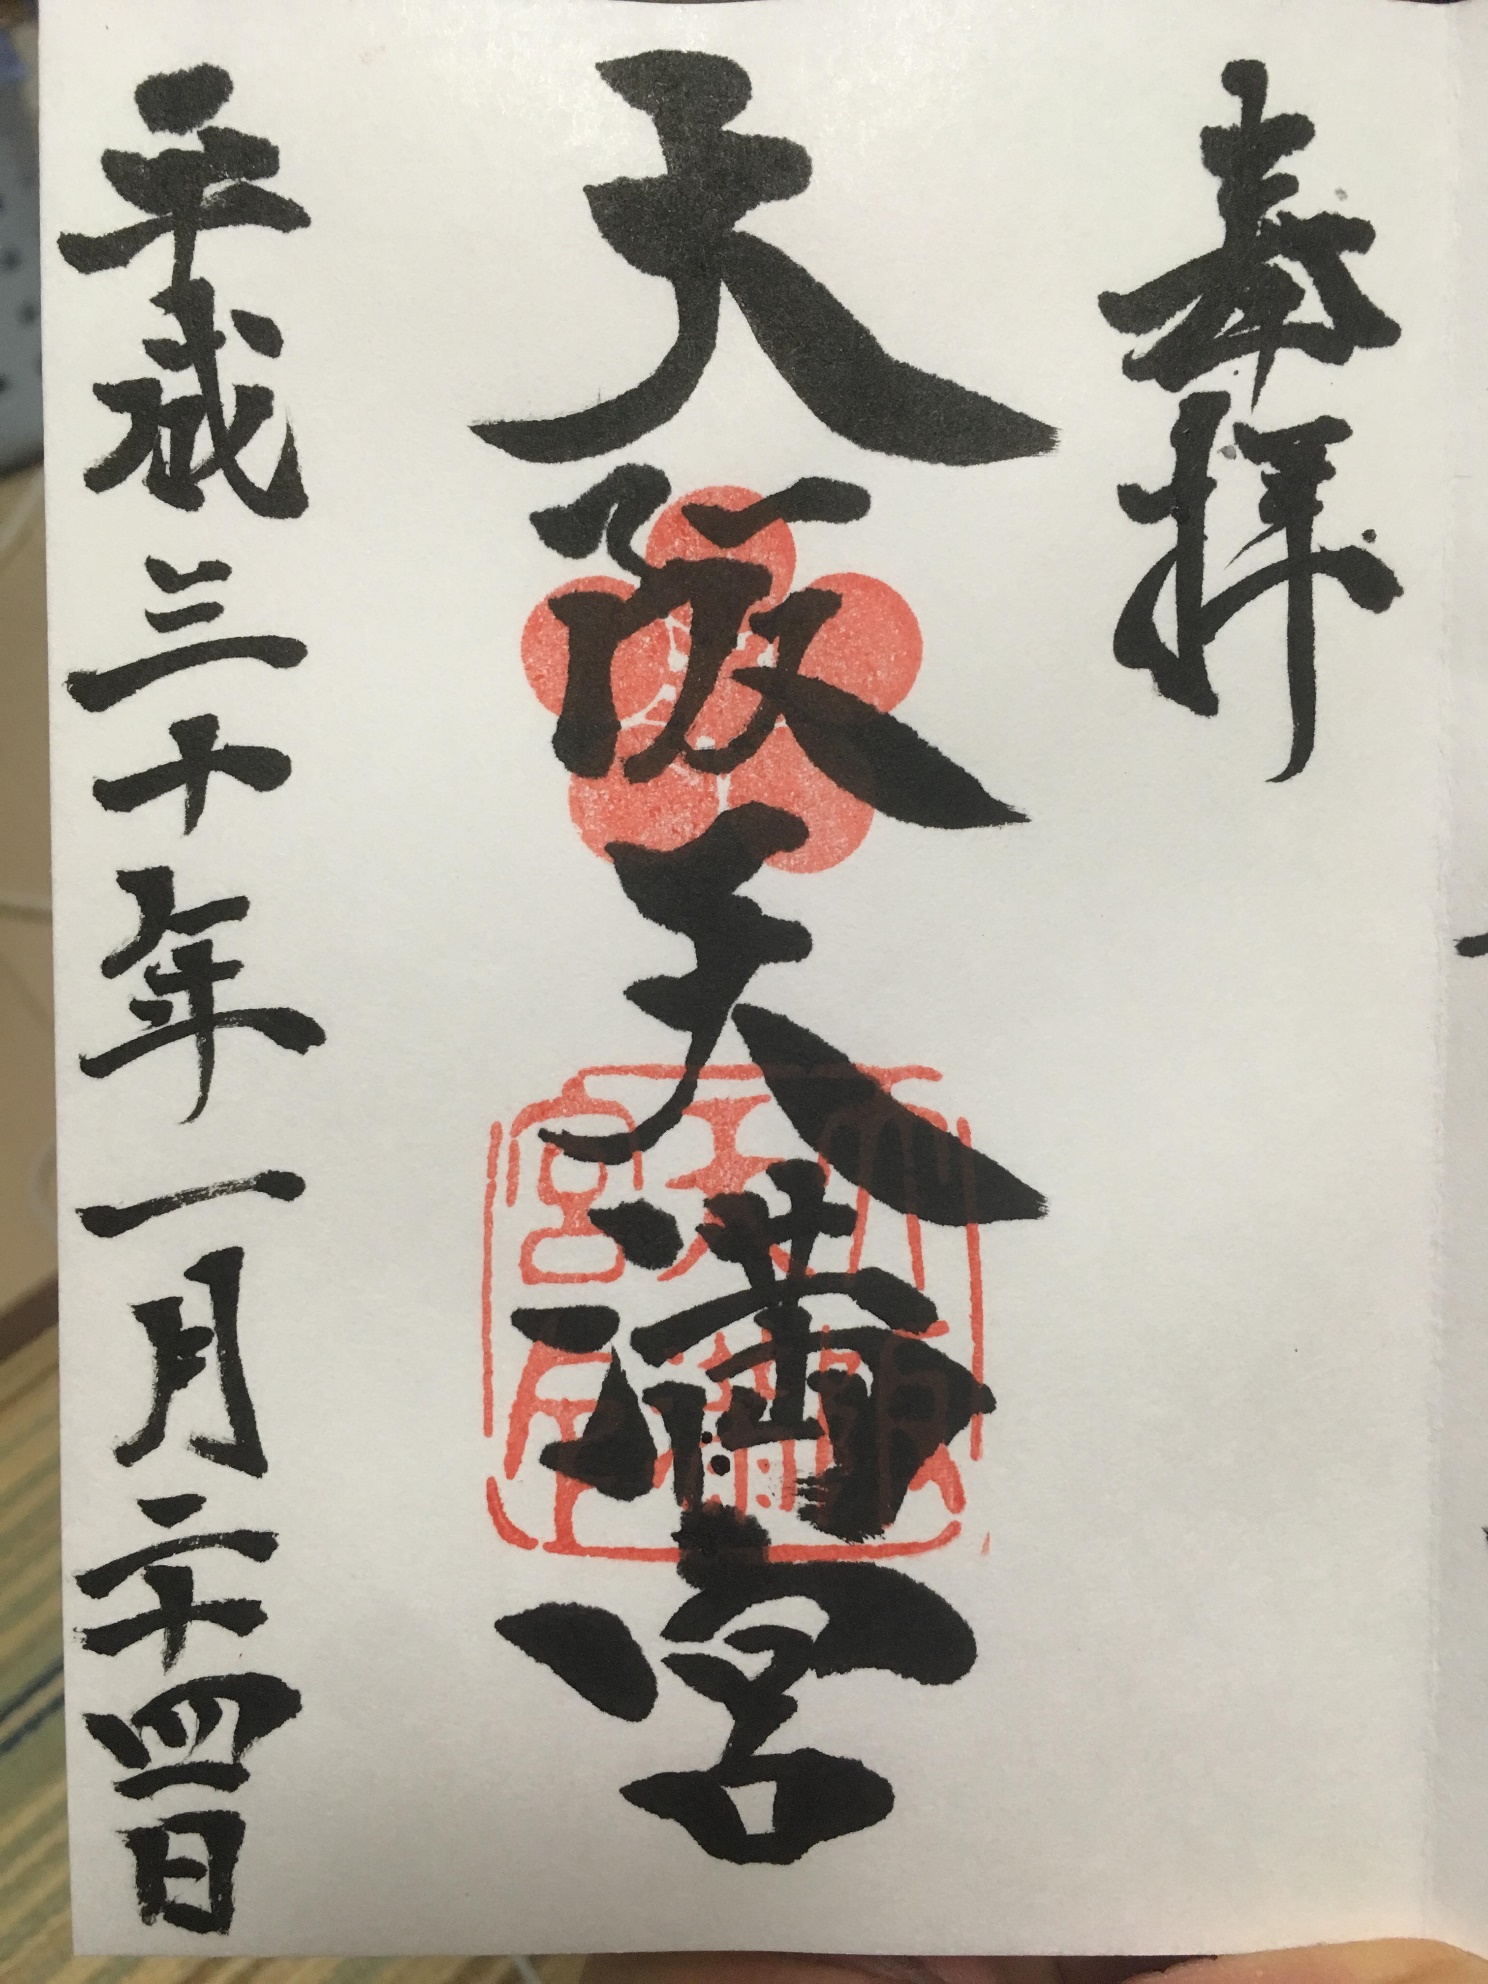 奉拝
大阪天満宮
平成三十年一月二十四日
大阪天満宮印